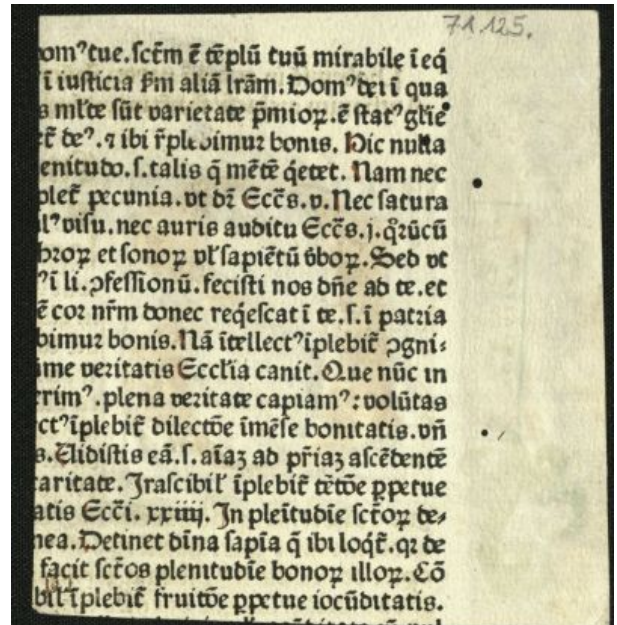 71.125.
omꝰ tue. sct̄m ē tēplū tuū mirabile ī eq̄
ꝰ ī iusticia ẜm aliā lr̄am. Domꝰ dei ī qua
s ml̄te sūt varietate p̄mioꝝ. ē statꝰ gl̄ie
et̄ deꝰ. ⁊ ibi r̄plebimur bonis. Hic nulla
enitudo. s. talis q̄ mētē q̄etet. Nam nec
plet̄ pecunia. vt dr̄ Ecc̄s. v. Nec satura
lꝰ visu. nec auris auditu Ecc̄s. j. q̄rūcū
broꝝ et sonoꝝ vl̓ sapiētū v̓boꝝ. Sed vt
ꝰ ī li. ꝯfessionū. fecisti nos dn̄e ad te. et
ē cor nr̄m donec req̄escat ī te. s. ī patria
bimur bonis. Nā ītellectꝰ īplebit̄ ꝯgni⸗
ime veritatis Eccl̄ia canit. Que nūc in
rrimꝰ. plena veritate capiamꝰ: volūtas
ctꝰ īplebit̄ dilectōe īmēse bonitatis. vn̄
s. Elidistis eā. s. aīaꝫ ad pr̄iaꝫ ascēdentē
caritate. Irascibil̓ īplebit̄ tētōe ꝑpetue
atis Ecc̄i. xxiiij. In pleītudīe sct̄oꝝ de⸗
nea. Detinet dīna sapīa q̄ ibi loq̄t̄. qꝛ de
facit sct̄os plenitudīe bonoꝝ illoꝝ. Cō
bil̓ īplebit̄ fruitōe ꝑpetue iocūditatis.